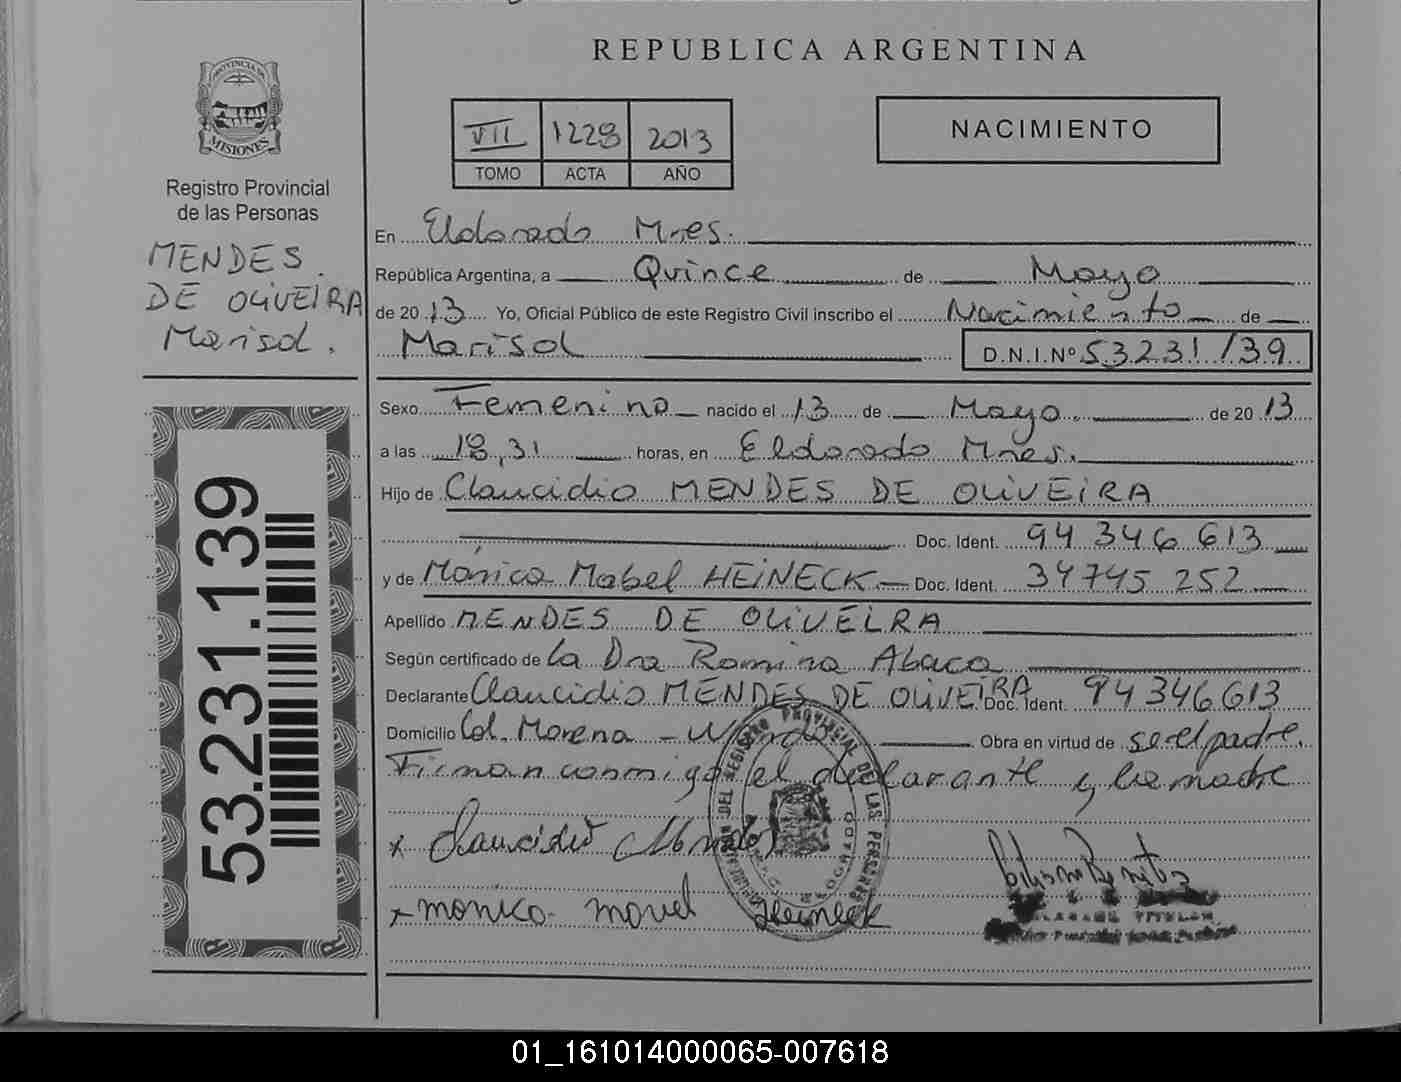 REPUBLICA ARGENTINA
PROVINCIA DE
MISIONES
Registro Provincial
de las Personas
MENDES
DE OLIVEIRA
Marisol.
53.231.139
VII 1228 2013
TOMO ACTA AÑO
NACIMIENTO
En Eldorado Mnes.
República Argentina, a Quince de Mayo
de 20 13 Yo, Oficial Público de este Registro Civil inscribo el Nacimiento de
Marisol D.N.I.Nº 53231139
Sexo Femenino nacido el 13 de Mayo de 20 13
a las 18,31 horas, en Eldorado Mnes.
Hijo de Claucidio MENDES DE OLIVEIRA
Doc. Ident. 94 346 613
y de Mónica Mabel HEINECK Doc. Ident. 34745 252
Apellido MENDES DE OLIVEIRA
Según certificado de La Dra Romina Abaca
Declarante Claucidio MENDES DE OLIVEIRA Doc. Ident. 94346613
Domicilio Col. Morena - Obra en virtud de ser el padre.
Firman conmigo el declarante y la madre
DEL REGISTRO PROVINCIAL DE LAS PERSONAS
ELDORADO
x Claucidio Mendes
x monica mavel Heineck
01_161014000065-007618